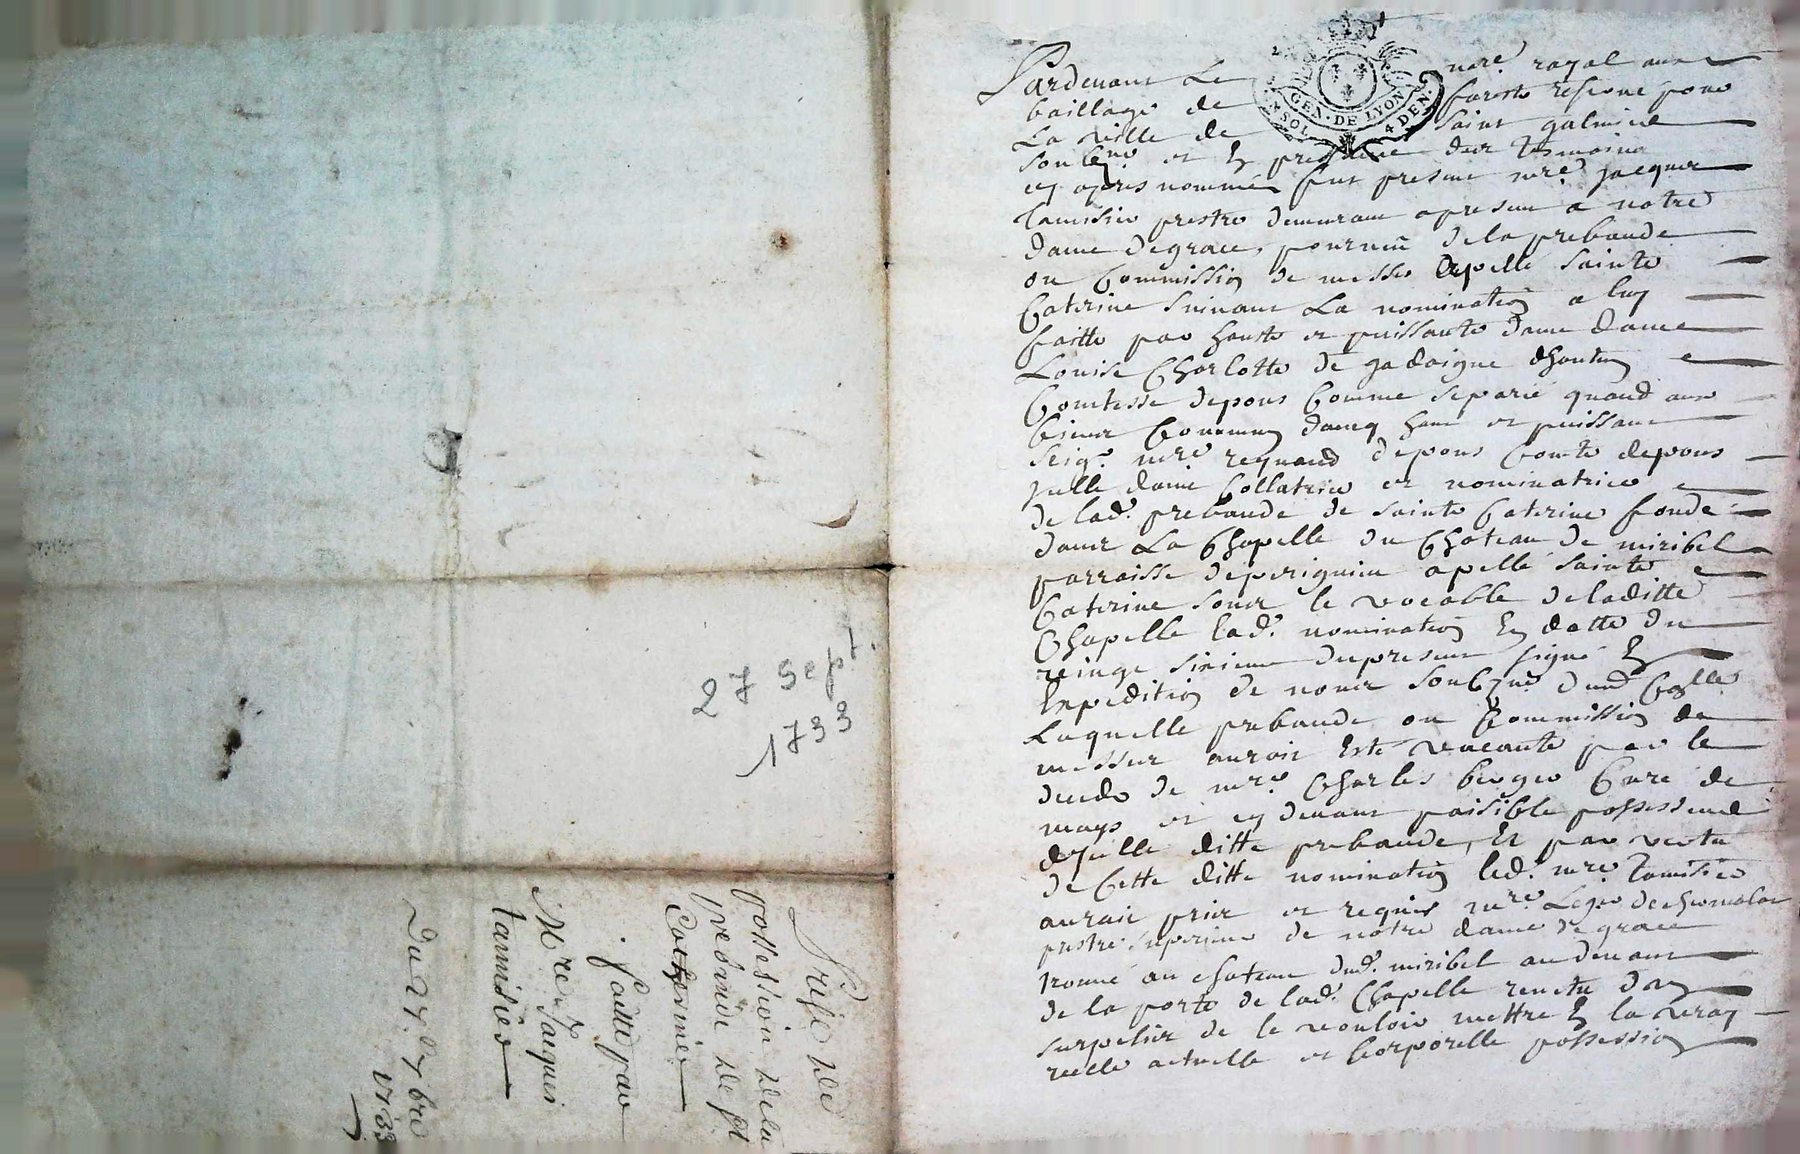 27 Sept.
1733
Prise de
possession de la
prebande de st
Catherine
faitte par
Mre Jacques
tamisier
Du 27. 7bre
1733
GEN. DE LYON
SOL 4 DEN.
Pardevant Le nore royal aux
baillage de forests reservé pour
La ville de saint galmier
soubsne et En presence des tesmoins
cy apres nommés fut present mre jacques
Tamisier prestre demeurant apresent a notre
dame de grace, pourveu de la prebande
ou Commission de messes apellé sainte
Caterine suivant La nomination a luy
faitte par haute et puissante dame dame
Louise Charlotte de gadaigne dhostun
Comtesse depons Comme separée quand aux
biens davec haut et puissant
seigr. mre regnaud depons Comte depons
jcelle dame Collatrice et nominatrice
de lad. prebande de sainte Caterine fondé
dans La Chapelle du Chateau de miribel
parroisse deperignieu apellé sainte
Caterine sous le vocable deladitte
Chapelle lad. nomination En datte du
veinge sixieme dupresent signé En
Expedition de nous soubsne dud
Laquelle prebande ou Commission de
messes auroit Esté vacante par le
deceds de mre Charles berger Curé de
mays et cy devant paisible possesseur
djcelle ditte prebande, Et par vertu
de Cette ditte nomination led. mre Tamisier
auroit prié et requis mre Leger
prestre superieur de notre dame de grace
trouvé au chateau dud. miribel au devant
de la porte de lad. Chapelle revetu dun
surpelis de le vouloir mettre En la vray
reelle actuelle et Corporelle possession